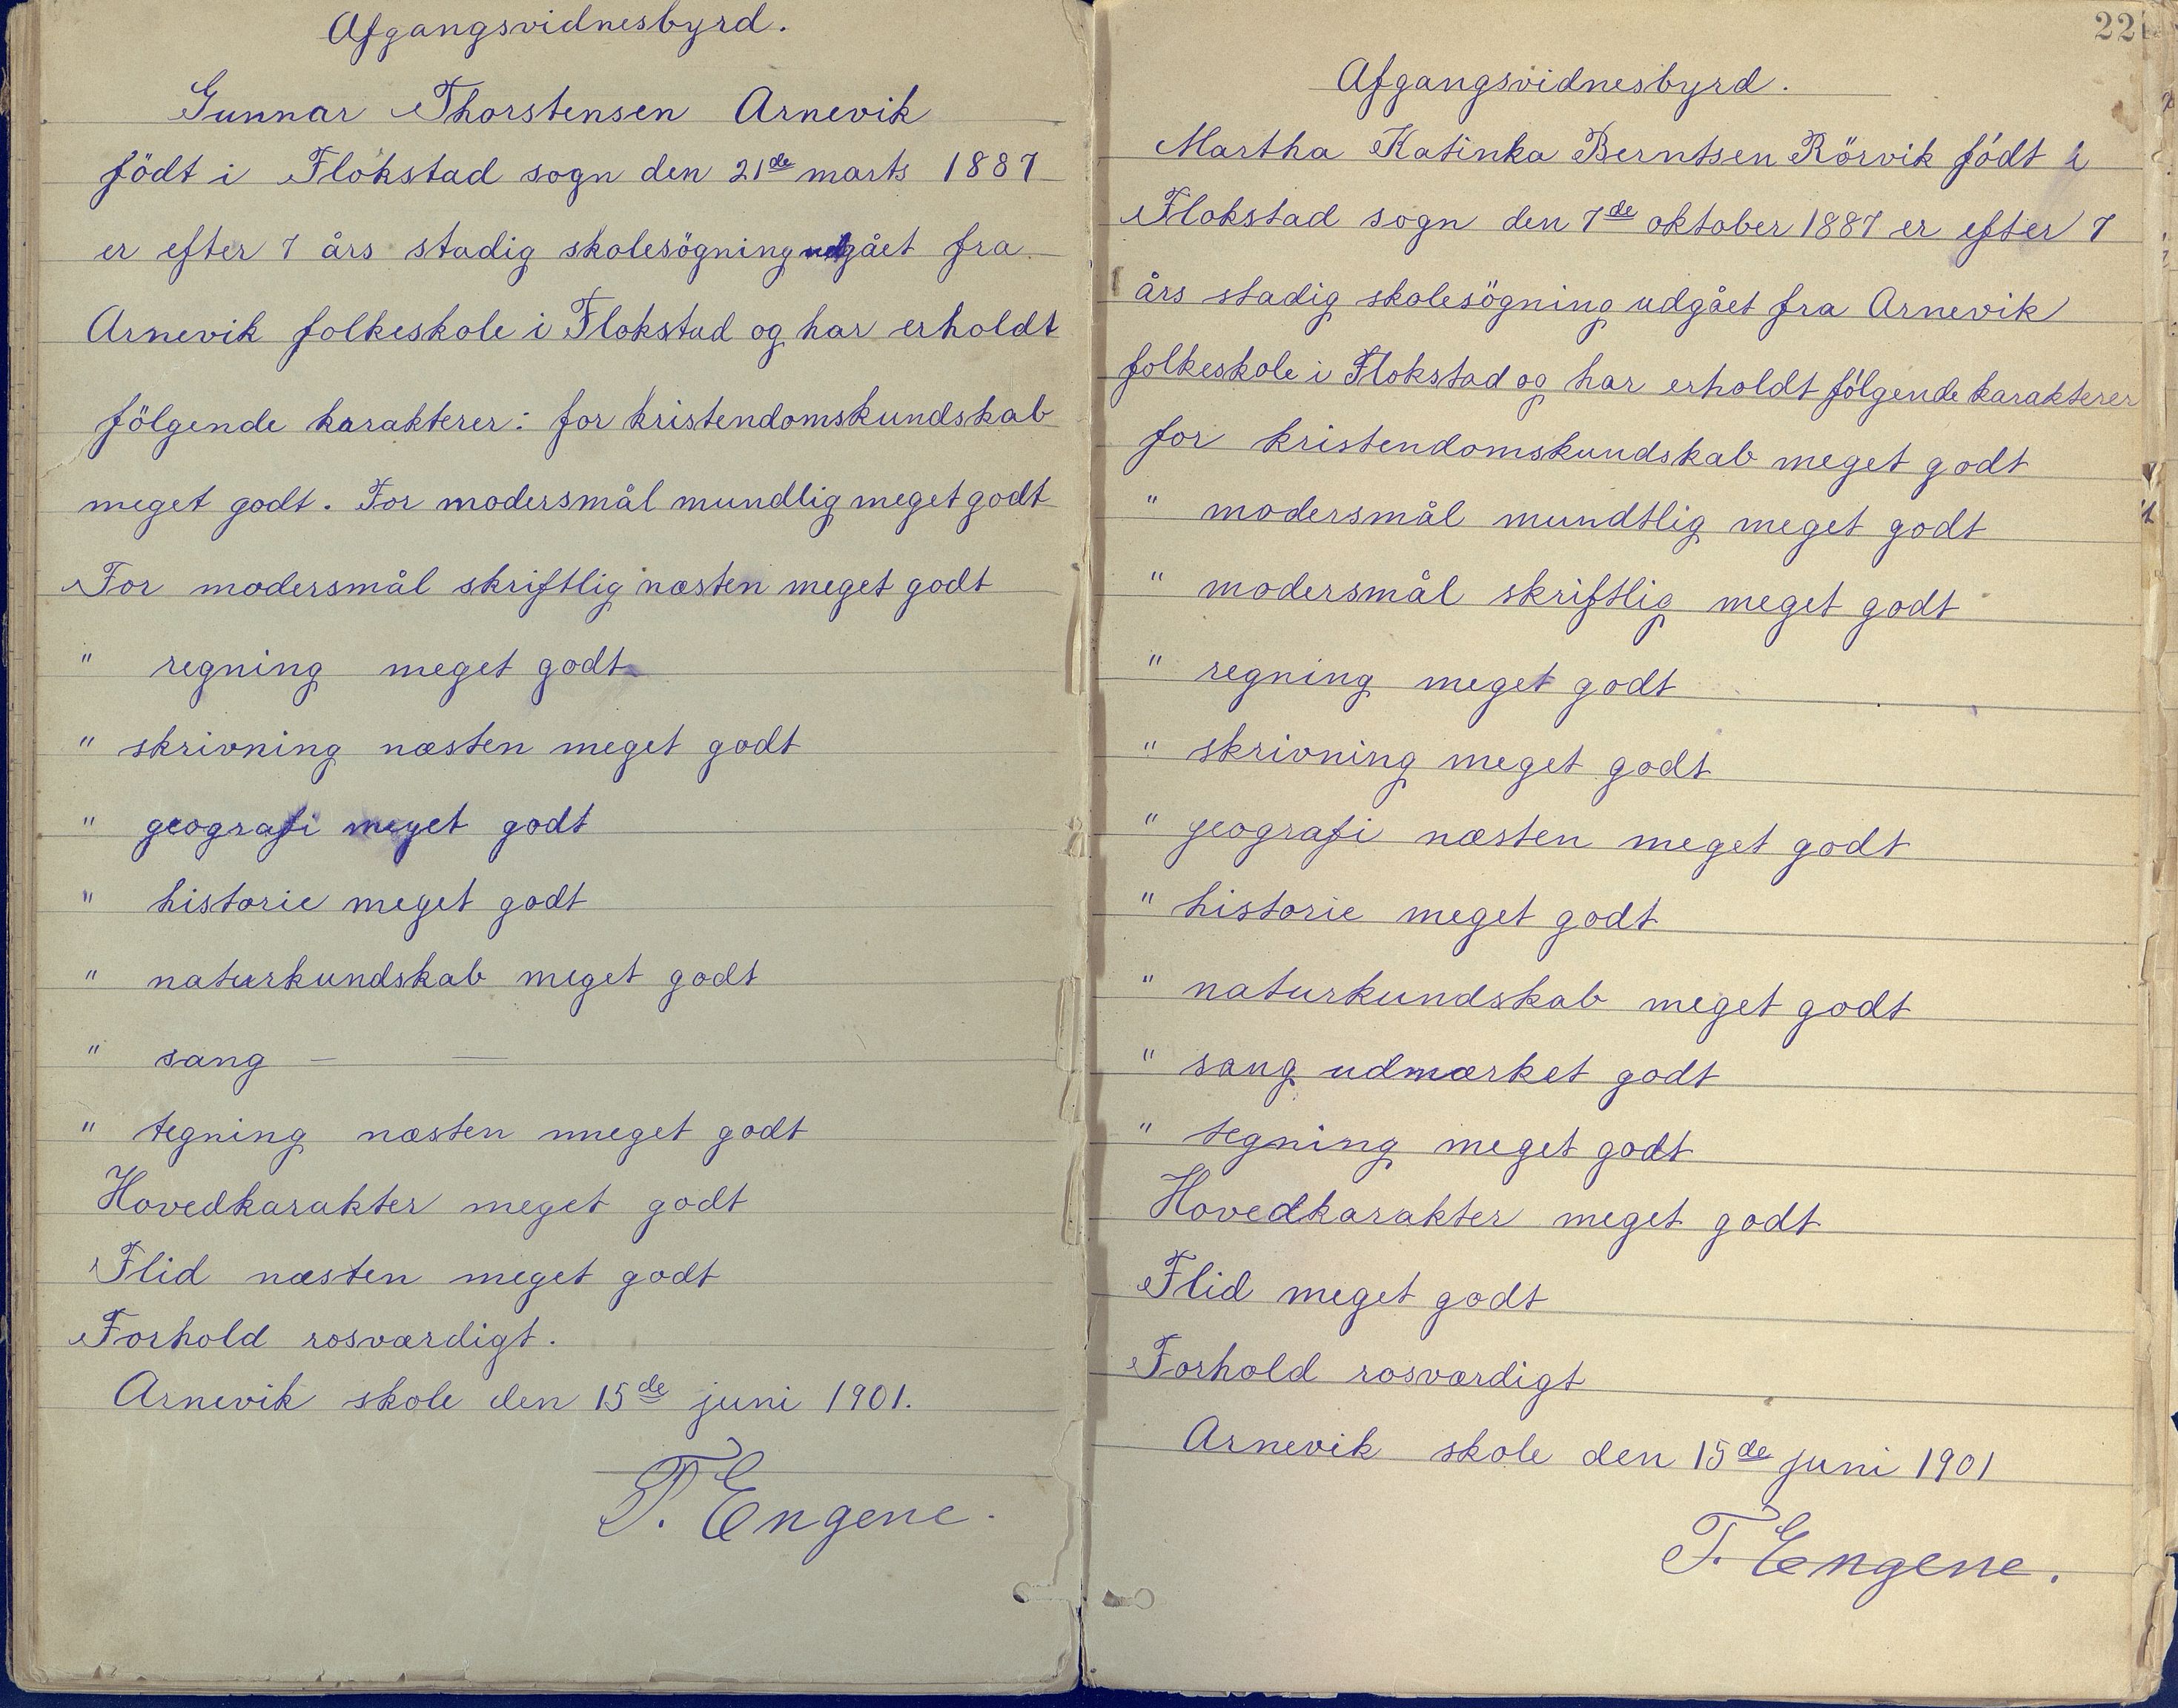 Afgangsvidnesbyrd.
Gunnar Thorstensen Arnevik
födt i Flokstad sogn den 21de marts 1887
er efter 7 års stadig skolesögning udgået fra
Arnevik folkeskole i Flokstad og har erholdt
fölgende karakterer: for kristendomskundskab
meget godt. For modersmål mundlig meget godt
For modersmål skriftlig næsten meget godt
" regning meget godt
" skrivning næsten meget godt
" geografi meget godt
" historie meget godt
" naturkundskab meget godt
" sang — —
" tegning næsten meget godt
Hovedkarakter meget godt
Flid næsten meget godt
Forhold rosværdigt.
Arnevik skole den 15de juni 1901.
T. Engene.
22
Afgangsvidnesbyrd.
Martha Katinka Berntsen Rörvik födt i
Flokstad sogn den 7de oktober 1887 er efter 7
års stadig skolesögning udgået fra Arnevik
folkeskole i Flokstad og har erholdt fölgende karakterer
for kristendomskundskab meget godt
" modersmål mundtlig meget godt
" modersmål skriftlig meget godt
" regning meget godt
" skrivning meget godt
" geografi næsten meget godt
" historie meget godt
" naturkundskab meget godt
" sang udmærket godt
" tegning meget godt
Hovedkarakter meget godt
Flid meget godt
Forhold rosværdigt
Arnevik skole den 15de juni 1901
T. Engene.